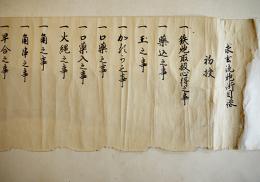 初授
一鉄炮取扱心得之事
一薬込之事
一玉之事
一かれら之事
一口薬之事
一口薬入之事
一火縄之事
一角之事
一角串之事
一早合之事